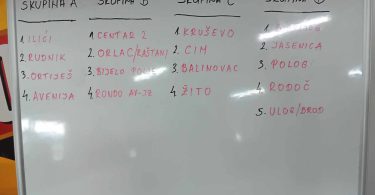 SKUPINA A
1 ILIĆI
2. RUDNIK
3. ORTIJEŠ
4. AVENIJA
SKUPINA B
1 CENTAR 2
2. ORLAC/RAŠTANI
3. BIJELO POLJE
4. RONDO
SKUPINA C
1 KRUŠEVO
2. CIM
3. BALINOVAC
4. ŽITO
SKUPINA D
2. JASENICA
3. POLOG
4. RODOČ
5. ULOG/BROD